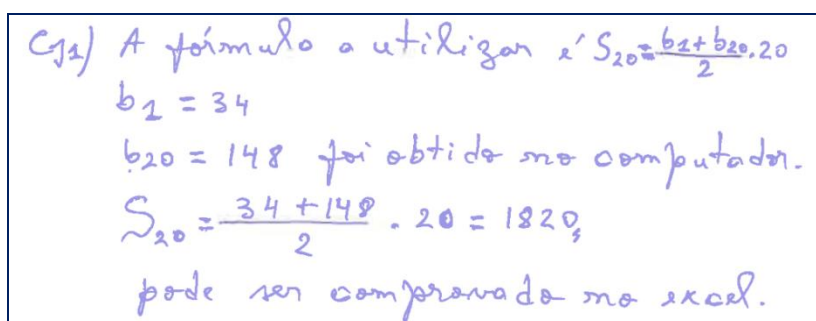 Cg1) A fórmula a utilizar é S₂₀ = (b₁ + b₂₀)/2 . 20
b₁ = 34
b₂₀ = 148 foi obtido no computador.
S₂₀ = (34 + 148)/2 . 20 = 1820,
pode ser comprovado no excel.